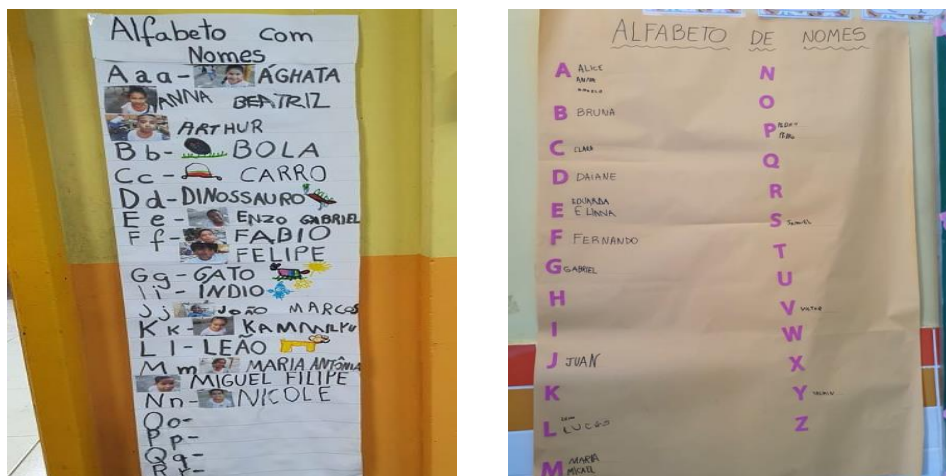 Alfabeto com
Nomes
A a a - ÁGHATA
ANNA BEATRIZ
ARTHUR
B b - BOLA
C c - CARRO
D d - DINOSSAURO
E e - ENZO GABRIEL
F f - FABIO
FELIPE
G g - GATO
I i - ÍNDIO
J j JOÃO MARCOS
K k - KAMMILLY
L l - LEÃO
M m MARIA ANTÔNIA
MIGUEL FILIPE
N n - NICOLE
O o -
P p -
Q q -
R r -
ALFABETO DE NOMES
A ALICE
ANNA
B BRUNA
C CLARA
D DAIANE
E EDUARDA
ELIANA
F FERNANDO
G GABRIEL
H
I
J JUAN
K
L
LUCAS
M MARIA
MICAEL
N
O
P PEDRO
Q
R
S
T
U
V VITOR
W
X
Y
Z